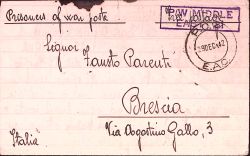 Prisoners of war foste
P.W. MIDDLE
EAST
29DEC42
E.A.C.
Signor Fausto Parenti
Brescia
Italia
Via Agostino Gallo, 3